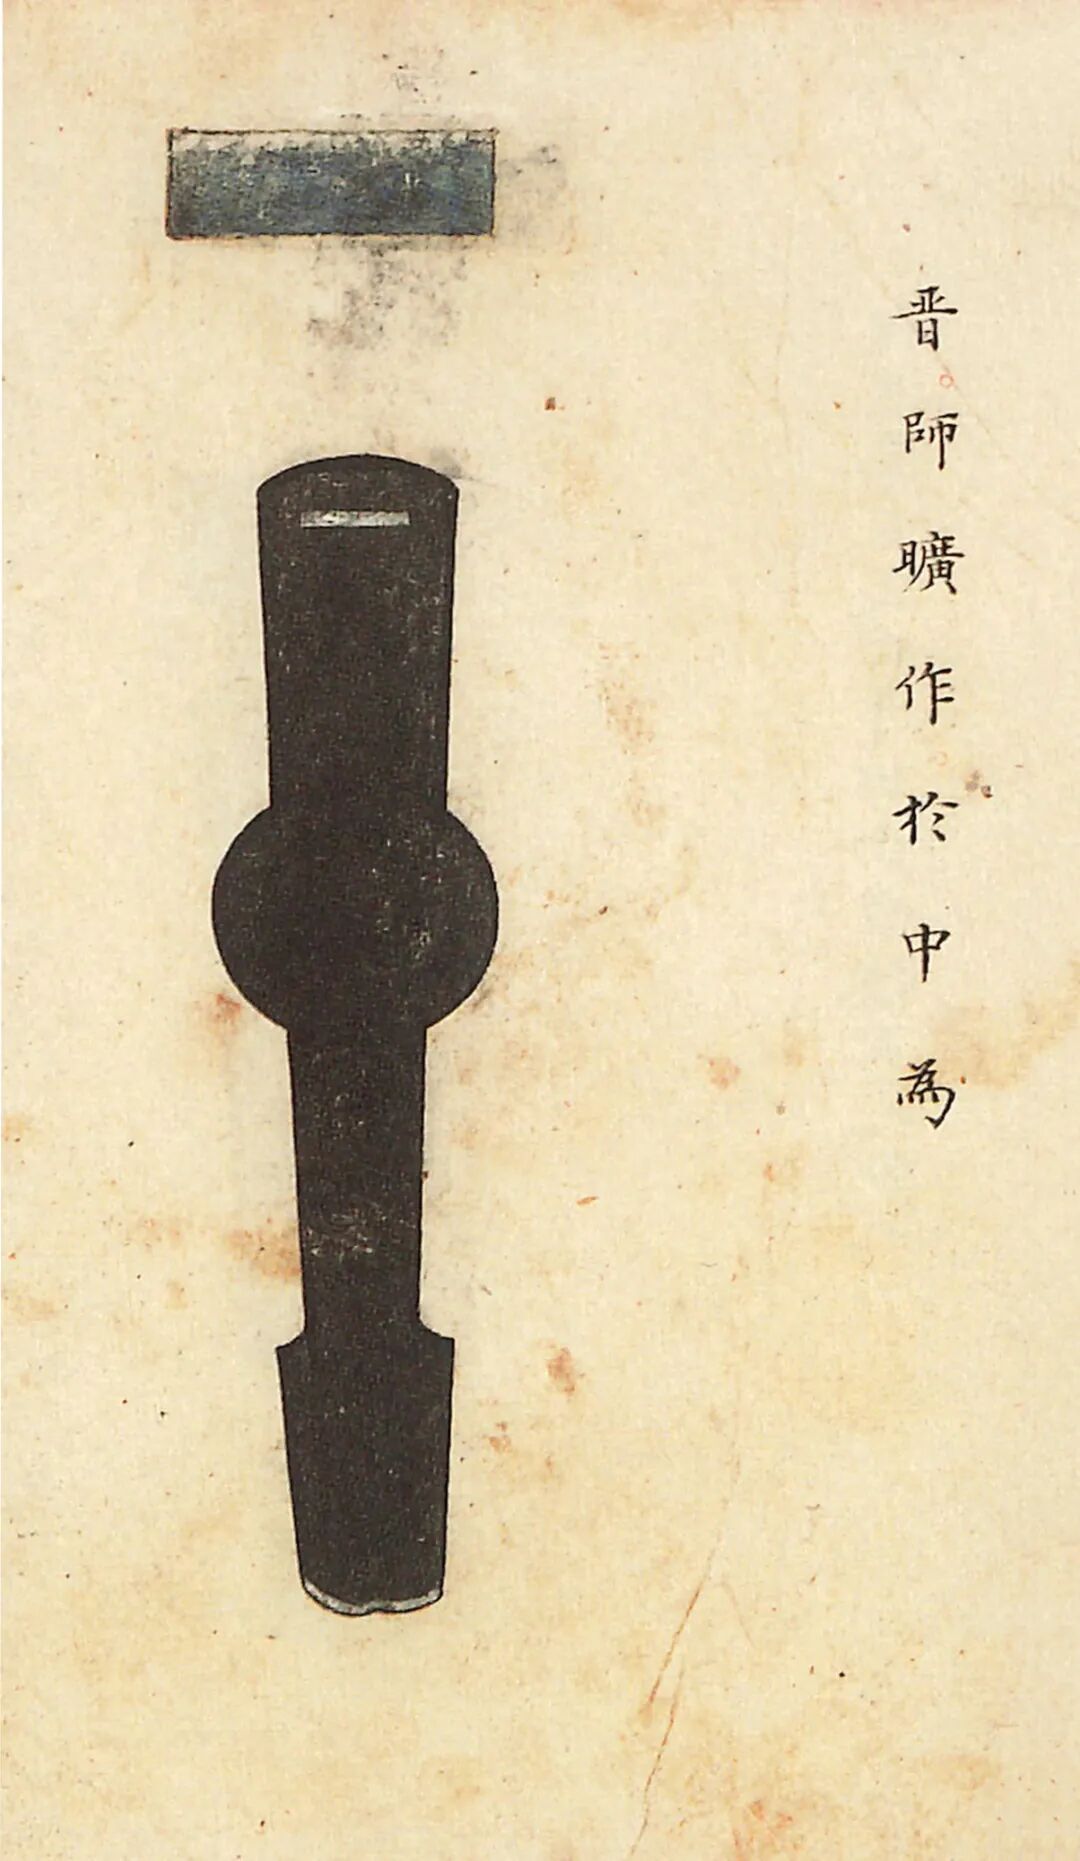 晋師曠作於中為